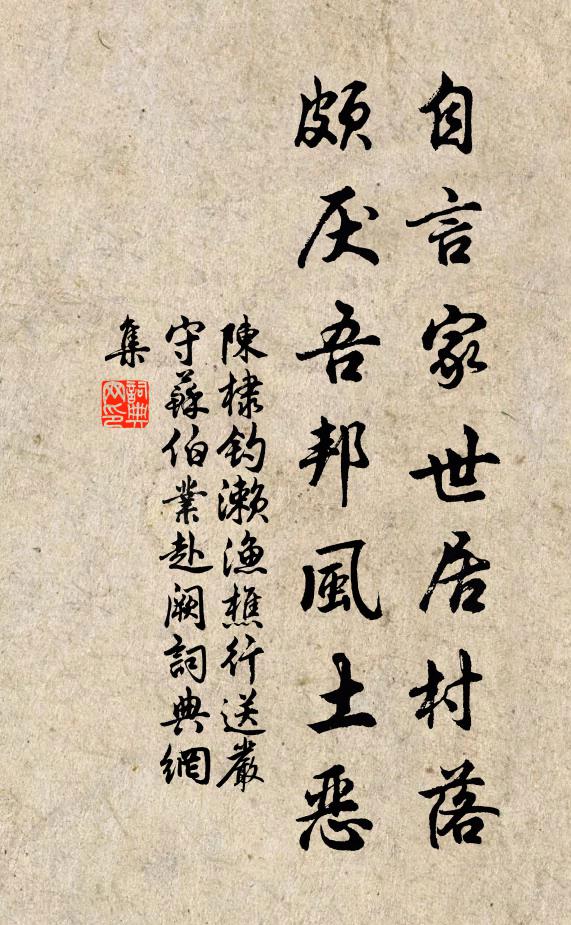 自言家世居村落
頗厌吾邦風土惡
陳棣釣瀨漁樵行送嚴
守蘇伯業赴闕詞典網
集
詞典网印